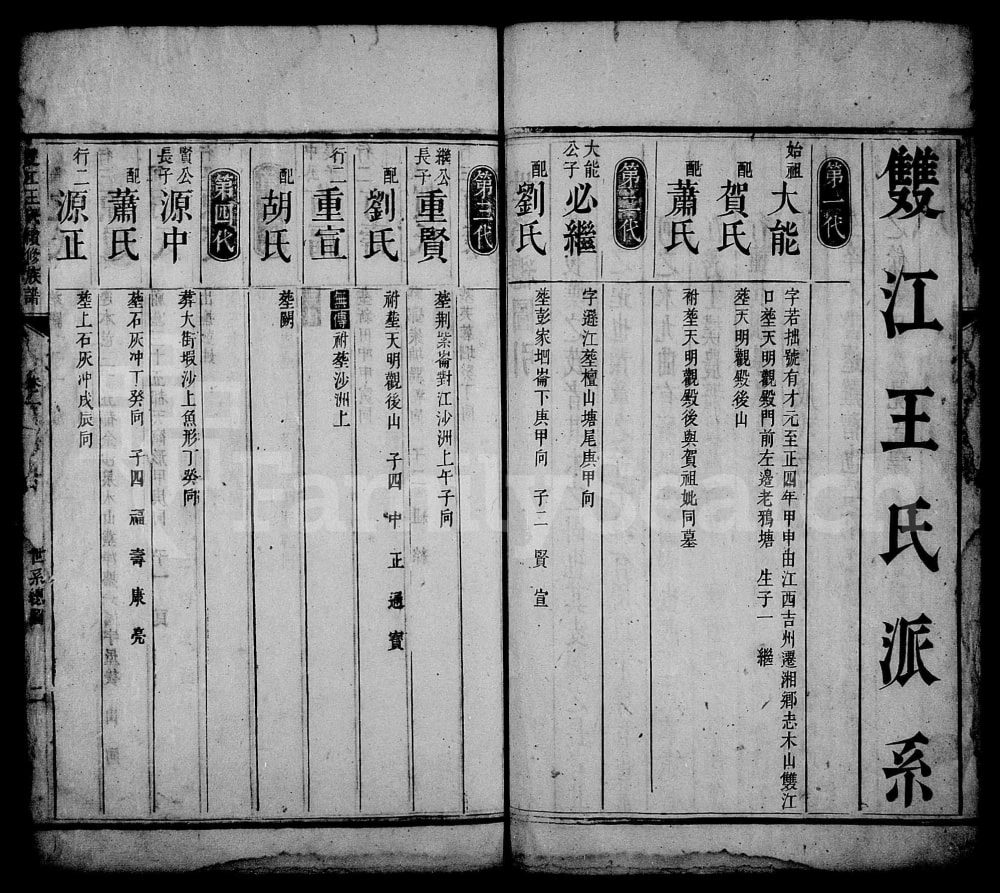 雙江王氏派系
第一代
始祖
大能
字若拙號有才元至正四年甲申由江西吉州遷湘鄉志木山雙江
口塟天明觀殿門前左邊老鴉塘 生子一 繼
配
賀氏
塟天明觀殿後山
配
蕭氏
祔塟天明觀殿後與賀祖妣同墓
第二代
大能
公子
必繼
字遜江塟檀山塘尾庚甲向
配
劉氏
塟彭家堌崙下庚甲向 子二 賢 宣
第三代
繼公
長子
重賢
塟荆紫崙對江沙洲上午子向
配
劉氏
祔塟天明觀後山 子四 中 正 通 寳
行二
重宣
無傳祔塟沙洲上
配
胡氏
塟闕
第四代
賢公
長子
源中
葬大街塅沙上魚形丁癸向
配
蕭氏
塟石灰冲丁癸向 子四 福 壽 康 亮
行二
源正
塟上石灰冲戌辰向
雙江王氏續修族譜
世系總圖
二
FamilySearch